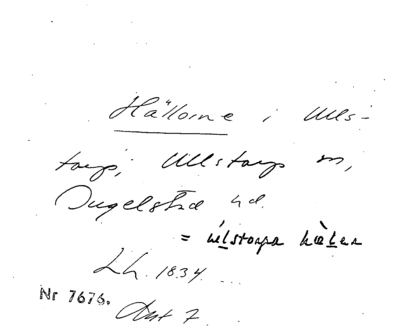 Hällorne i Ulls-
torp, Ullstorps sn,
Ingelstad hd.
= úlstorpa hὲler
Lh. 1834.
Nr 7676.
Ant 7